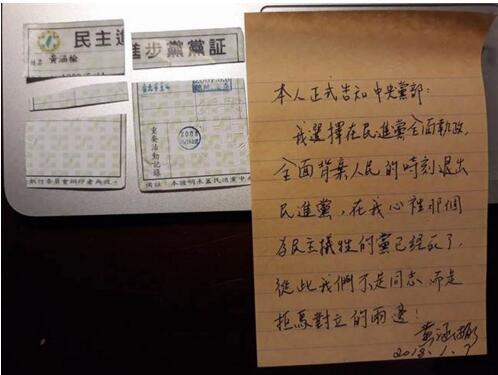 民主進
進步黨黨証
姓名 黃涵榆
2008
重要活動記錄
本人正式告知中央黨部：
我選擇在民進黨全面執政、
全面背棄人民的時刻退出
民進黨，在我心裡那個
為民主犧牲的黨已經死了，
從此我們不是同志，而是
拒馬對立的兩邊！
黃涵榆
2018.1.7